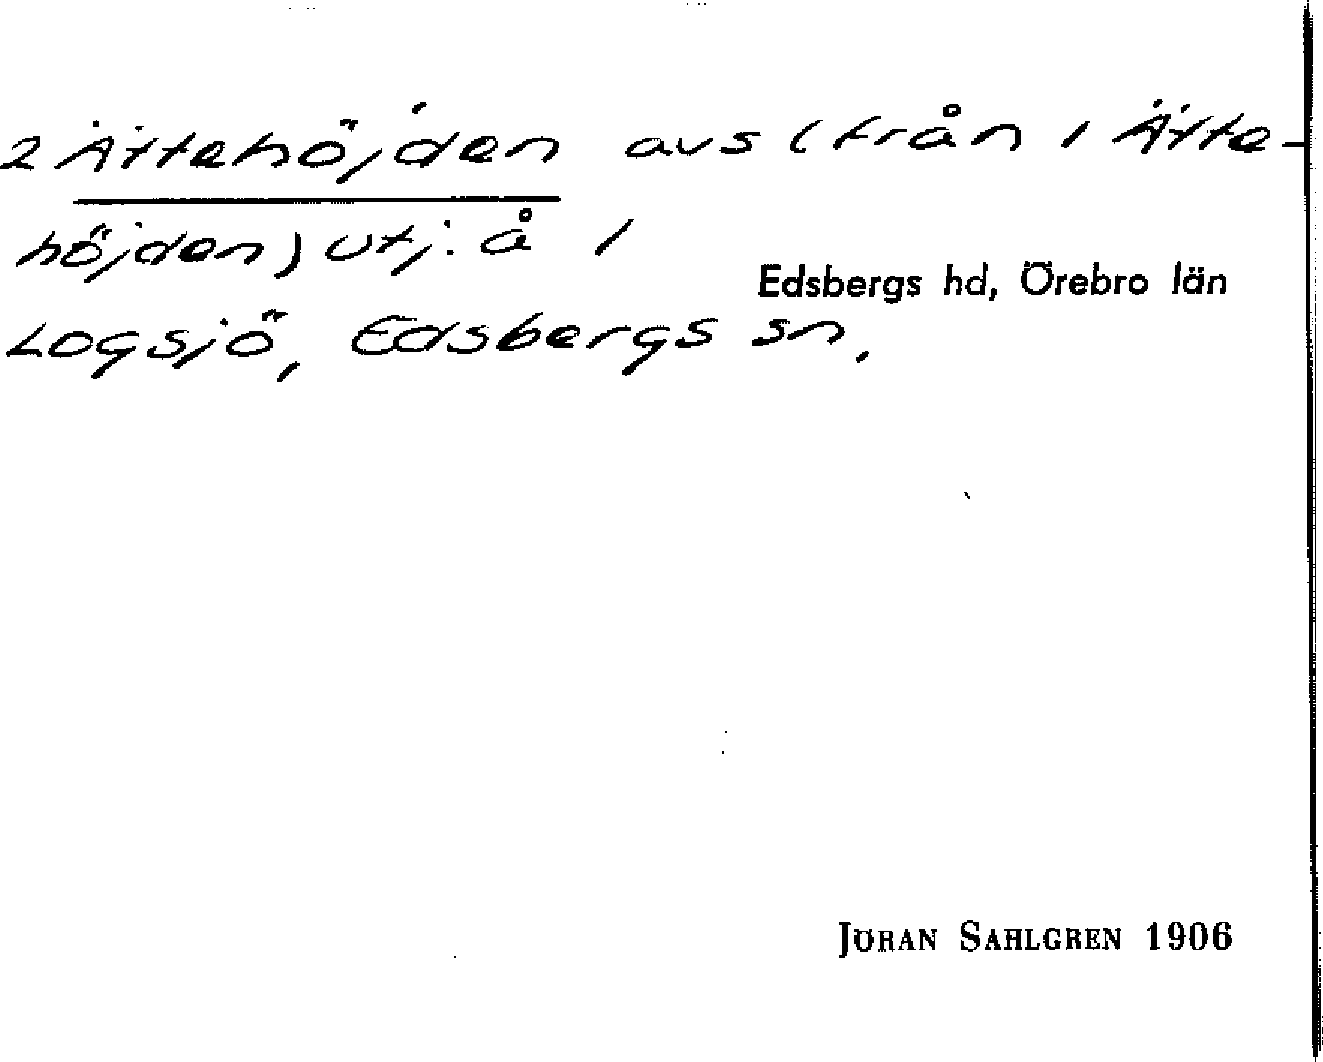 2 Ättehöjden avs (från 1 Ätte-
höjden) utj. å 1
Edsbergs hd, Örebro län
Logsjö, Edsbergs sn.
JÖRAN SAHLGREN 1906